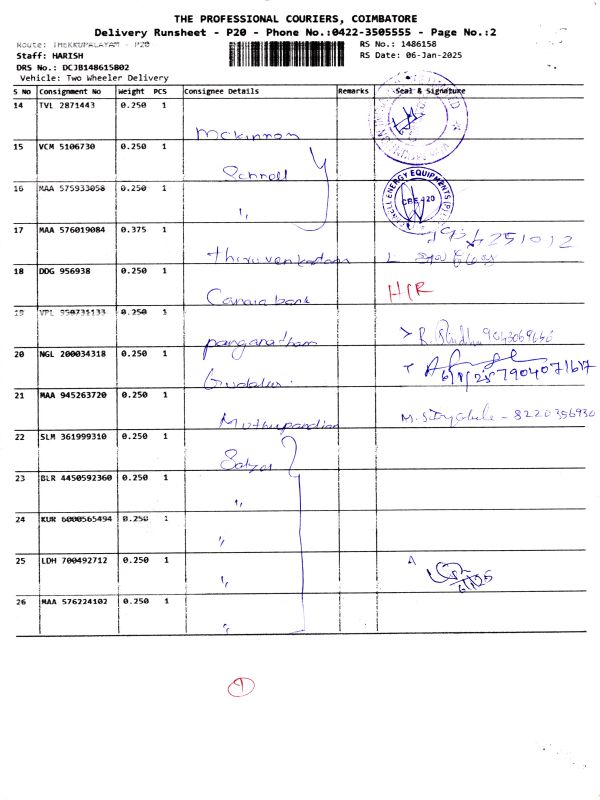 THE PROFESSIONAL COURIERS, COIMBATORE
Delivery Runsheet - P20 - Phone No.:0422-3505555 - Page No.:2
Route: THEKKUPALAYAM - P20
RS No.: 1486158
Staff: HARISH
RS Date: 06-Jan-2025
DRS No.: DCJB148615B02
Vehicle: Two Wheeler Delivery
S No Consignment No Weight PCS Consignee Details Remarks Seal & Signature
14 TVL 2871443 0.250 1 Mckinnon
15 VCM 5106730 0.250 1 Schroll
16 MAA 575933058 0.250 1 " CBE - 20
17 MAA 576019084 0.375 1 Thiruvenkadam
18 DDG 956938 0.250 1 Canara bank H/R
19 VPL 950731133 0.250 1
20 NGL 200034318 0.250 1 Gudalur. 6/1/25 7904071617
21 MAA 945263720 0.250 1 Muthupandian
22 SLM 361999310 0.250 1
23 BLR 4450592360 0.250 1 "
24 KUR 6000565494 0.250 1 "
25 LDH 700492712 0.250 1 " 6/1/25
26 MAA 576224102 0.250 1 "